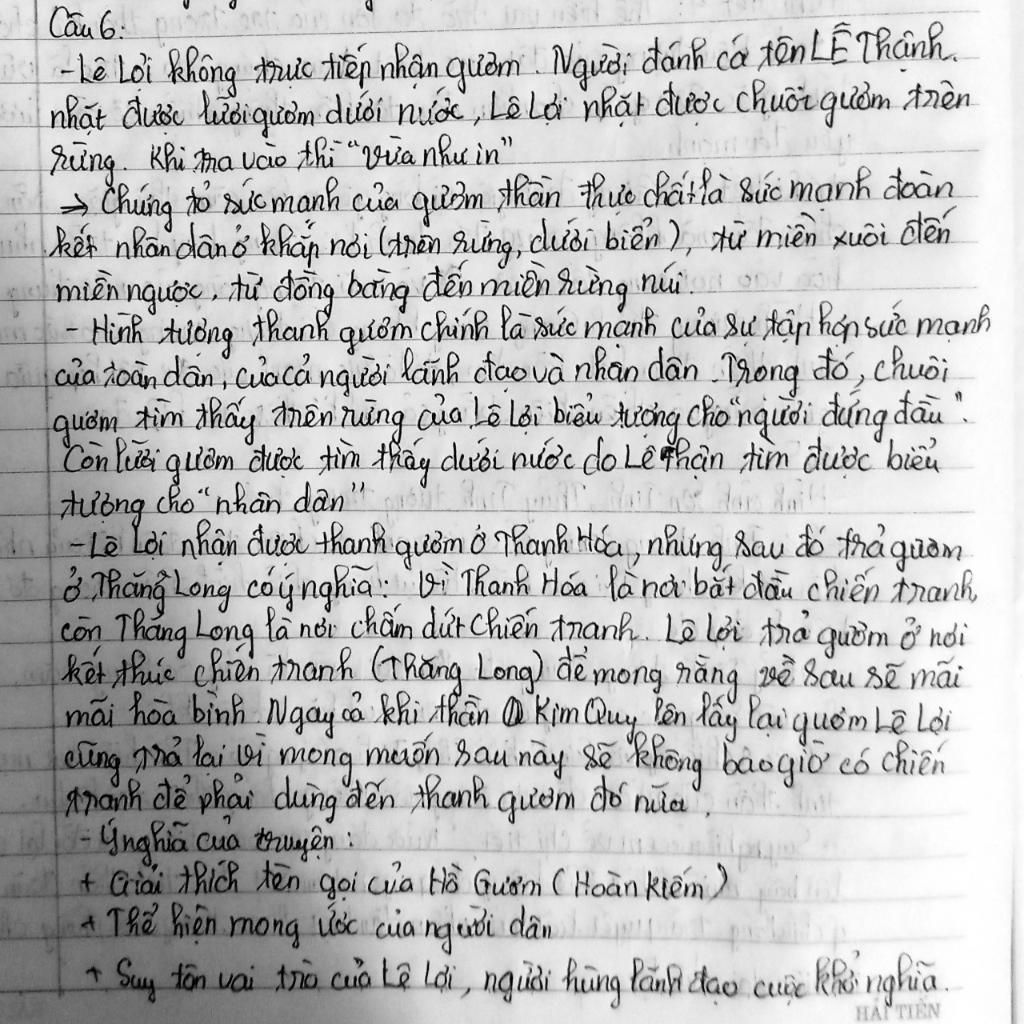 Câu 6:
- Lê Lợi không trực tiếp nhận gươm. Người đánh cá tên LÊ Thận
nhặt được lưỡi gươm dưới nước, Lê Lợi nhặt được chuôi gươm trên
rừng. Khi tra vào thì "vừa như in"
⇒ Chứng tỏ sức mạnh của gươm thần thực chất là sức mạnh đoàn
kết nhân dân ở khắp nơi (trên rừng, dưới biển), từ miền xuôi đến
miền ngược, từ đồng bằng đến miền rừng núi.
- Hình tượng thanh gươm chính là sức mạnh của sự tập hợp sức mạnh
của toàn dân, của cả người lãnh đạo và nhân dân. Trong đó, chuôi
gươm tìm thấy trên rừng của Lê Lợi biểu tượng cho "người đứng đầu".
Còn lưỡi gươm được tìm thấy dưới nước do Lê Thận tìm được biểu
tượng cho "nhân dân"
- Lê Lợi nhận được thanh gươm ở Thanh Hóa, nhưng sau đó trả gươm
ở Thăng Long có ý nghĩa: Vì Thanh Hóa là nơi bắt đầu chiến tranh,
còn Thăng Long là nơi chấm dứt chiến tranh. Lê Lợi trả gươm ở nơi
kết thúc chiến tranh (Thăng Long) để mong rằng về sau sẽ mãi
mãi hòa bình. Ngay cả khi thần Kim Quy lên lấy lại gươm Lê Lợi
cũng trả lại vì mong muốn sau này sẽ không bao giờ có chiến
tranh để phải dùng đến thanh gươm đó nữa.
- Ý nghĩa của truyện:
+ Giải thích tên gọi của Hồ Gươm (Hoàn Kiếm)
+ Thể hiện mong ước của người dân
+ Suy tôn vai trò của Lê Lợi, người hùng lãnh đạo cuộc khởi nghĩa.
HẢI TIẾN